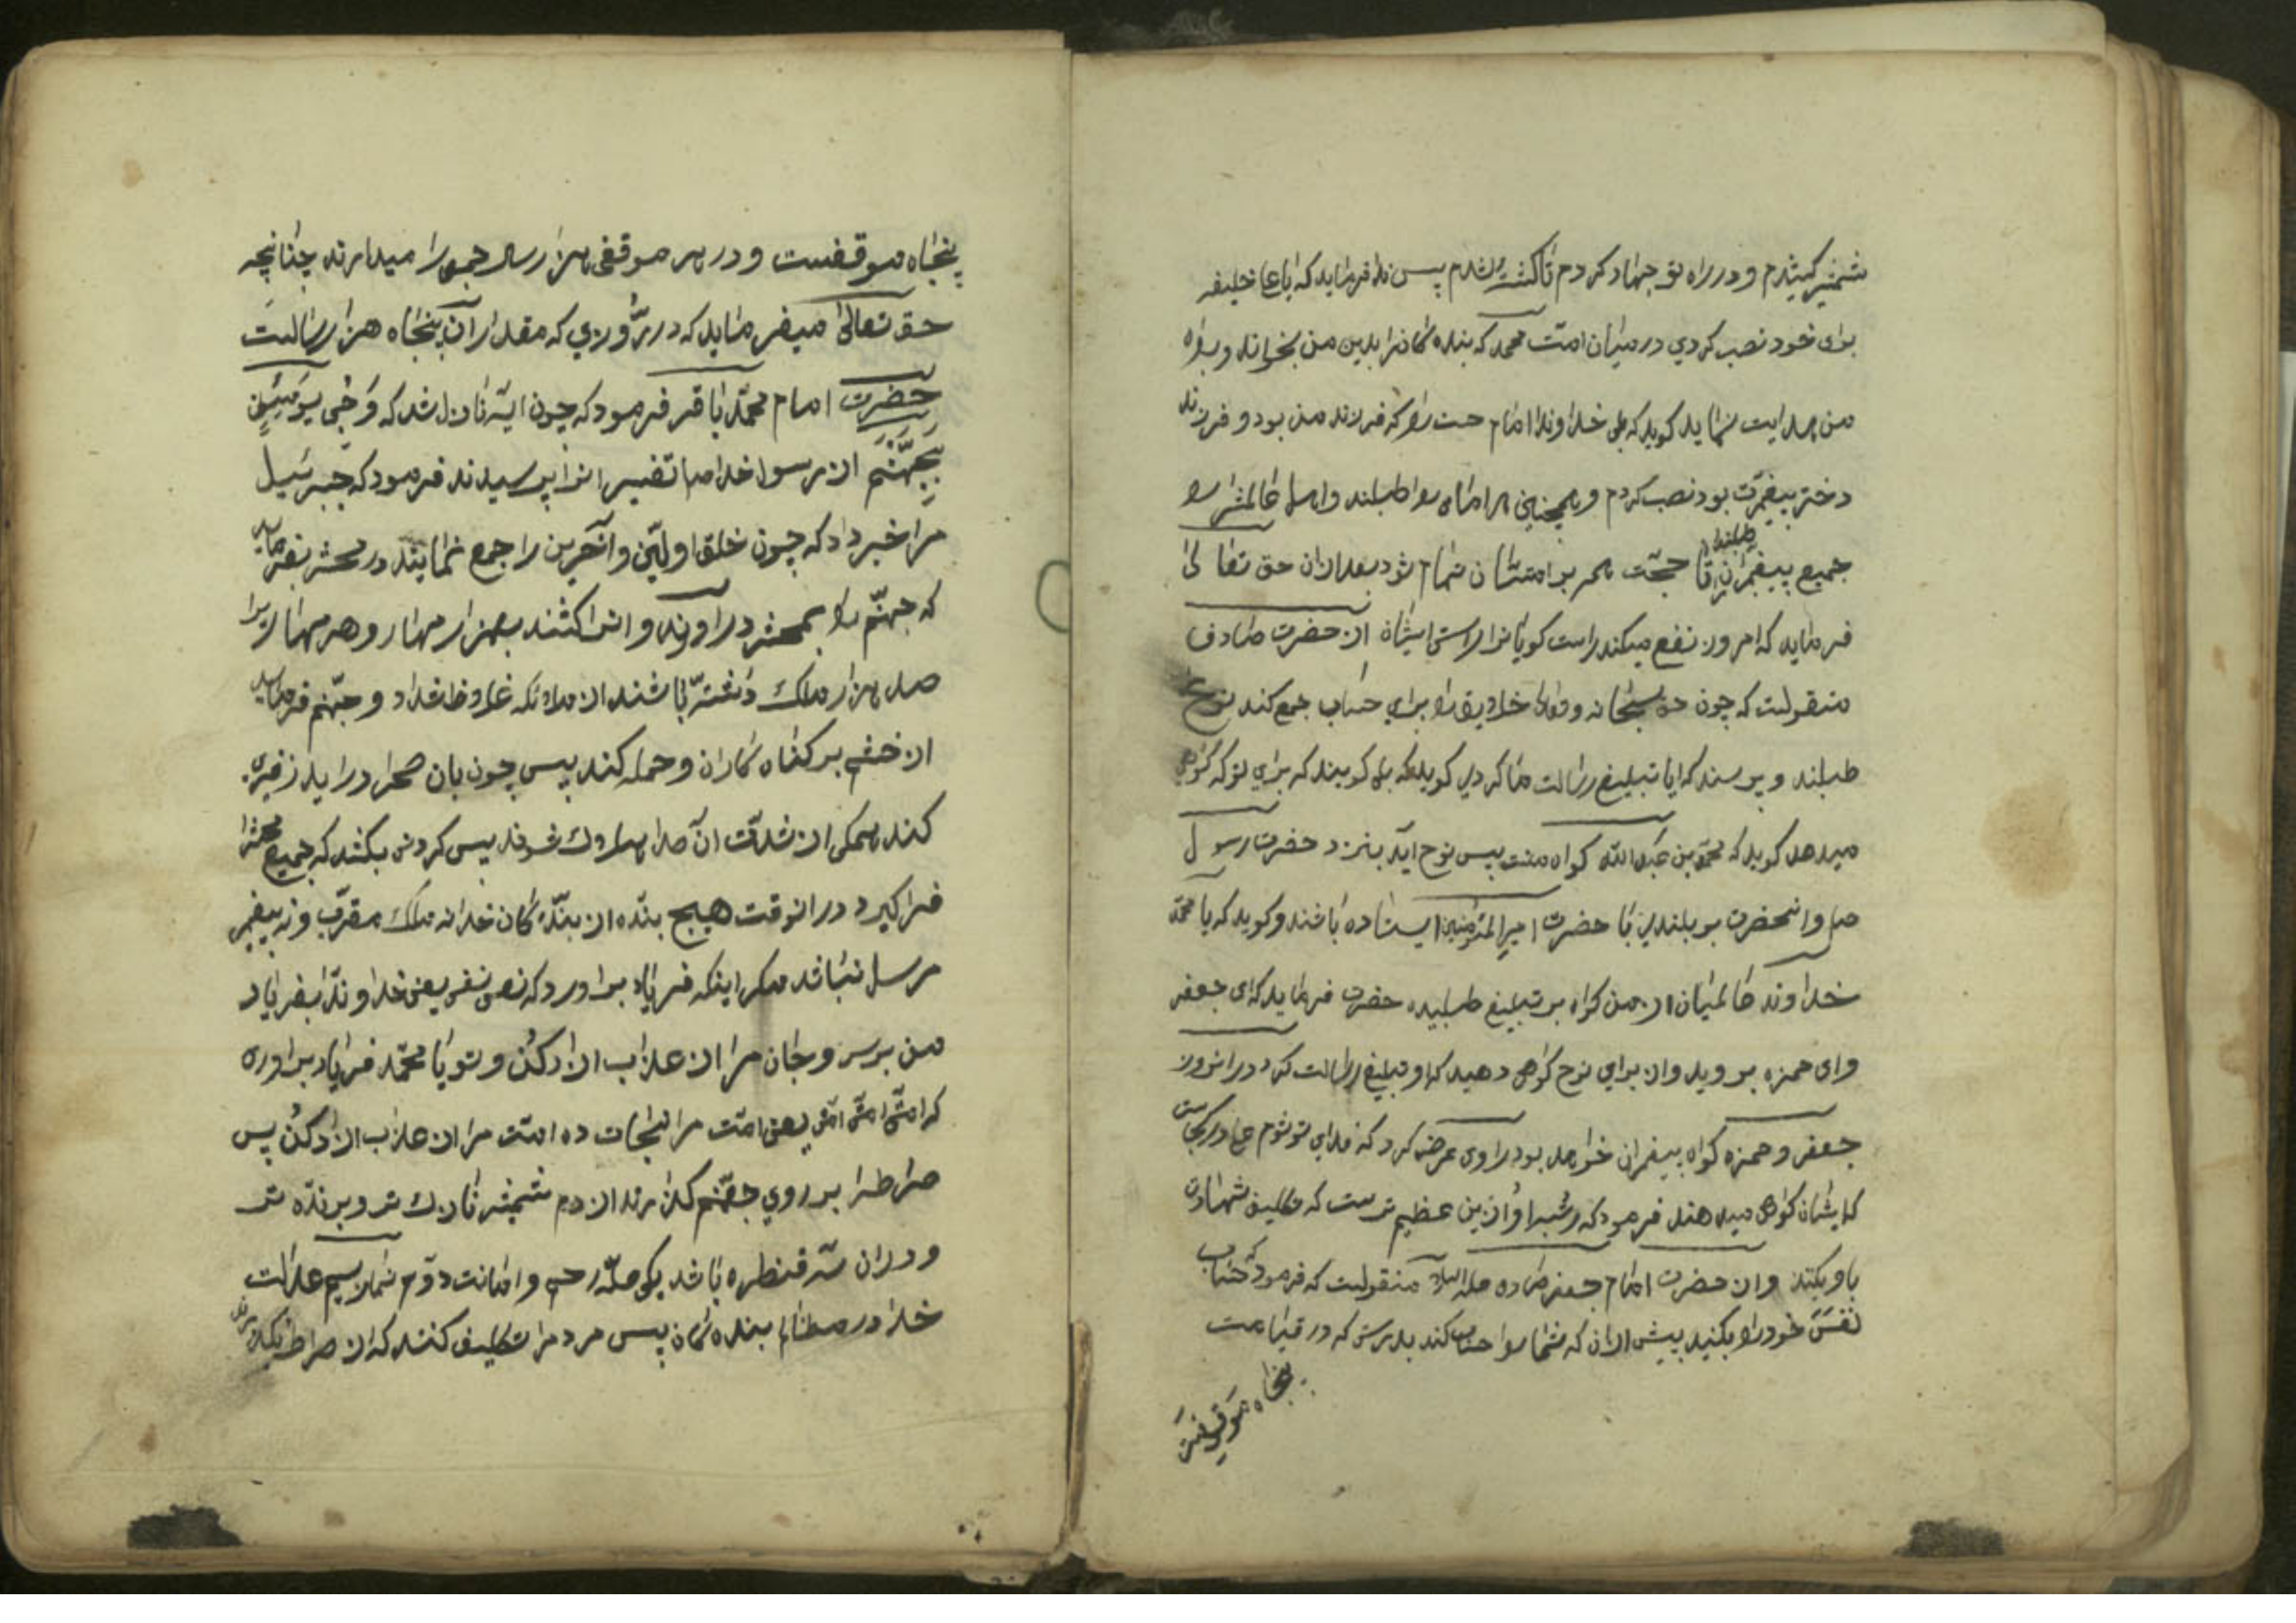 شمشیر کشیدم و در راه تو جهاد کردم تا کشته شدم پس ندا فرماید که ایا علی خلیفه
برای خود نصب کردی در میان امت محمد که بنده کانرا بدین من بخواند و براه
من هدایت نماید کوید که بلی خداوندا امام حسن را که فرزند من بود و فرزند
دختر پیغمبرت بود نصب کردم و همچنین هر امام را طلبند و اهل عالمش را
جمیع پیغمبران را طلبند تا حجت همه بر امتشان تمام شود بعد از ان حق تعالی
فرماید که امروز نفع میکند راست کویانرا راستی ایشان از حضرت صادق
منقولست که چون حق سبحانه و تعالی خلایق را برای حساب جمع کند نوح ع را
طلبند و پرسند که ایا تبلیغ رسالت ما کردی کوید که بلی کویند که برای تو که کواهی
میدهد کوید که محمد بن عبدالله کواه منست پس نوح اید بنزد حضرت رسول
ص و انحضرت بر بلندی با حضرت امیر المؤمنین ایستاده باشند و کوید که یا محمد
خداوند عالمیان از من کواه بر تبلیغ طلبیده حضرت فرماید که ای جعفر
و ای حمزه بروید و از برای نوح کواهی دهید که او تبلیغ رسالت کرد در انروز
جعفر و حمزه کواه پیغمبران خواهد بود راوی عرض کرد که فدای تو شوم علی در کجاست
که ایشان کواهی میدهند فرمود که رتبه او از این عظیم ترست که تکلیف شهادت
باو بکنند و از حضرت امام جعفر صادق علیه السلام منقولست که فرمود که حساب
نفس خود را بکنید پیش از ان که شما را حساب کنند بدرستی که در قیامت
پنجاه موقفست
پنجاه موقفست و در هر موقفی هزار سال جمعی را میدارند چنانچه
حق تعالی میفرماید که در روزی که مقدار آن پنجاه هزار سالست
حضرت امام محمد باقر فرمود که چون ایه نازل شد که وَجیءَ یومئذٍ
بجهنّم از رسول خدا ص تفسیر انرا پرسیدند فرمود که جبرئیل
مرا خبر داد که چون خلق اولین و آخرین را جمع نمایند در محشر بفرماید
که جهنم را بمحشر دراورند و انرا کشند بهزار مهار و هر مهاریرا
صد هزار ملک داشته باشند از ملائکه غلاظ و شداد و جهنم فرماید
از خشم بر کناه کاران و حمله کند پس چون بان صحرا دراید زفیری
کند همکی از شدت ان صدا هلاک شوند پس کردنی بکشد که جمیع محشر را
فرا کیرد در انوقت هیچ بنده از بنده کان خدا نه ملک مقرب و نه پیغمبر
مرسل نباشد مکر اینکه فریاد براورد که نفسی نفسی یعنی خداوندا بفریاد
من برس و جان مرا از عذاب ازاد کن و تو یا محمد فریاد براوری
که امتی امتی امتی یعنی امت مرا نجات ده امت مرا از عذاب ازاد کن پس
صراط را بر روی جهنم کذارند از دم شمشیر تاریک تر و برنده تر
و در ان سه قنطره باشد یکی صله رحم و امانت دوم نماز سیم عدالت
خدا در مظالم بنده کان پس مردم را تکلیف کنند که از صراط بکذرند